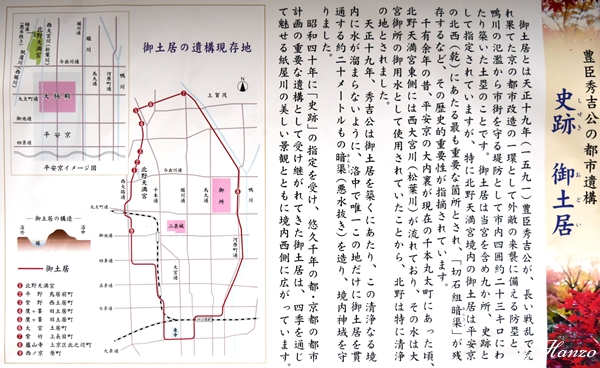 豊臣秀吉公の都市遺構
史跡 御土居
しせき おどい
御土居とは天正十九年(一五九一)豊臣秀吉公が、長い戦乱で荒
れ果てた京の都市改造の一環として外敵の来襲に備える防塁と、
鴨川の氾濫から市街を守る堤防として市内四囲約二十三キロにわ
たり築いた土塁のことです。御土居は当宮を含め九か所、史跡と
して指定されていますが、特に北野天満宮境内の御土居は平安京
の北西(乾)にあたる最も重要な箇所とされ、「切石組暗渠」が残
存するなど、その歴史的重要性が指摘されています。
千有余年の昔、平安京の大内裏が現在の千本丸太町にあった頃、
北野天満宮東側には西大宮川(松葉川)が流れており、その水は大
宮御所の御用水として使用されていたことから、北野は特に清浄
の地とされました。
天正十九年、秀吉公は御土居を築くにあたり、この清浄なる境
内に水が溜まらないように、洛中で唯一この地だけに御土居を貫
通する約二十メートルもの暗渠(悪水抜き)を造り、境内神域を守
りました。
昭和四十年に「史跡」の指定を受け、悠久千年の都・京都の都市
計画の重要な遺構として受け継がれてきた御土居は、四季を通じ
て魅せる紙屋川の美しい景観とともに境内西側に広がっています。
御土居の遺構現存地
上賀茂
鴨川
北野天満宮
西大路通
千本通
大宮通
堀川
烏丸通
河原町通
今出川通
丸太町通
御池通
四条通
五条通
御所
二条城
東寺
北野天満宮
西大宮川(松葉川)
堀川
鴨川
今出川通
大極殿
丸太町通
御池通
四条通
平安京
平安京イメージ図
御土居の構造
洛外
洛中
堀
御土居
❶北野天満宮
❷平野 鳥居前町
❸紫野 西土居町
❹鷹ヶ峯 旧土居町
❺鷹ヶ峯 旧土居町
❻大宮 土居町
❼紫竹 上長目町
❽蘆山寺 上京区北之辺町
❾西ノ京 原町
Hanzo